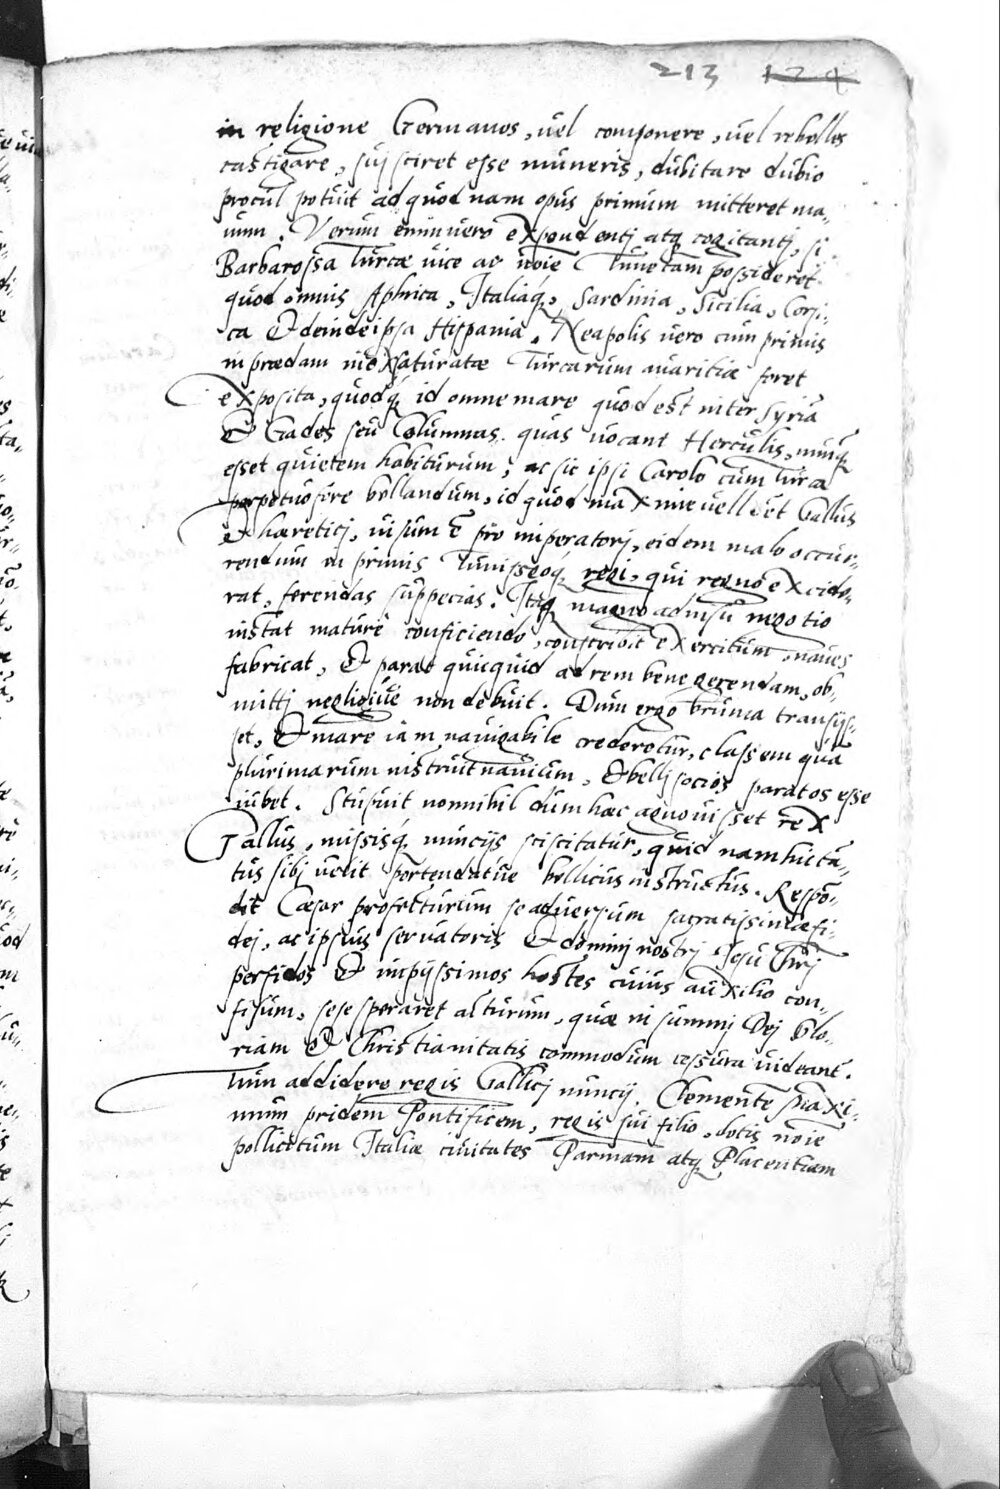 213 124
in religione Germanos, vel componere, vel rebelles
castigare, suj sciret esse muneris, dubitare dubio
procul potuit ad quod nam opus primum mitteret ma-
num. Verum enimvero expendentj atq cogitantj, si
Barbarossa Turcæ vice ac noīe Tunetam possideret
quod omnis Aphrica, Italiaq́, Sardinia, Sicilia, Corsi-
ca & deinde ipsa Hispania, Neapolis vero cum primis
in prædam inexsaturatæ Turcarum avaritiæ foret
exposita, quodq́ id omne mare quod est inter Syriā
& Gades seu Columnas quas vocant Herculis, nunq̄
esset quietem habiturum, ac sic ipsi Carolo cum Turca
perpetuo fere bellandum, id quod maxime vellet Gallus
& hæreticj, visum ē pro imperatorj, eidem malo occur-
rendum in primis Tunisseoq́ regi, qui regno excide-
rat, ferendas suppecias. Itaq magno adnisu negotio
instat mature conficiendo, conscribit exercitum, naves
fabricat, & parat quicquid ad rem bene gerendam, ob-
mittj negligive non debuit. Dum ergo bruma transijs-
set, & mare iam navigabile crederetur, classem quā
plurimarum instruit navium, & bellj socios paratos esse
iubet. Stupuit nonnihil dum hæc agnovisset rex
Gallus, missisq́ nuncijs sciscitatur, quid nam hic tā-
tus sibj velit portendatve bellicus instructus. Respō-
dit Cæsar profecturum se adversum sacratissimæ fi-
dej, ac ipsius servatoris & dominj nostrj Jesu Chrj
perfidos & impijssimos hostes cuius auxilio con-
fisum, sese speraret acturum, quæ in summj Dej glo-
riam & Christianitatis commodum cessura videant.
Tum addidere regis Gallicj nuncij, Clementē maxi-
mum pridem Pontificem, regis sui filio, dotis noīe
pollicitum Italiæ civitates Parmam atq Placentiam